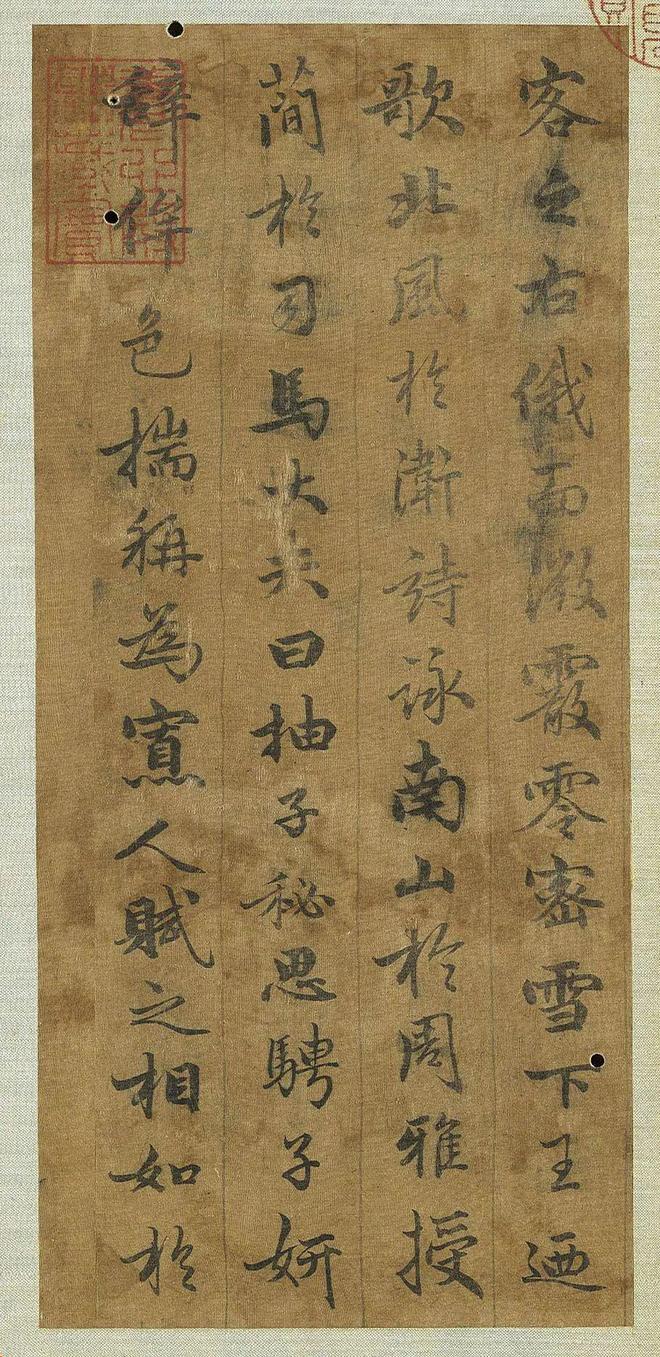 客之右俄而微霰零密雪下王迺
歌北風於衛詩詠南山於周雅授
蕳於司馬大夫曰抽子秘思騁子妍
辭侔色揣稱為寡人賦之相如於